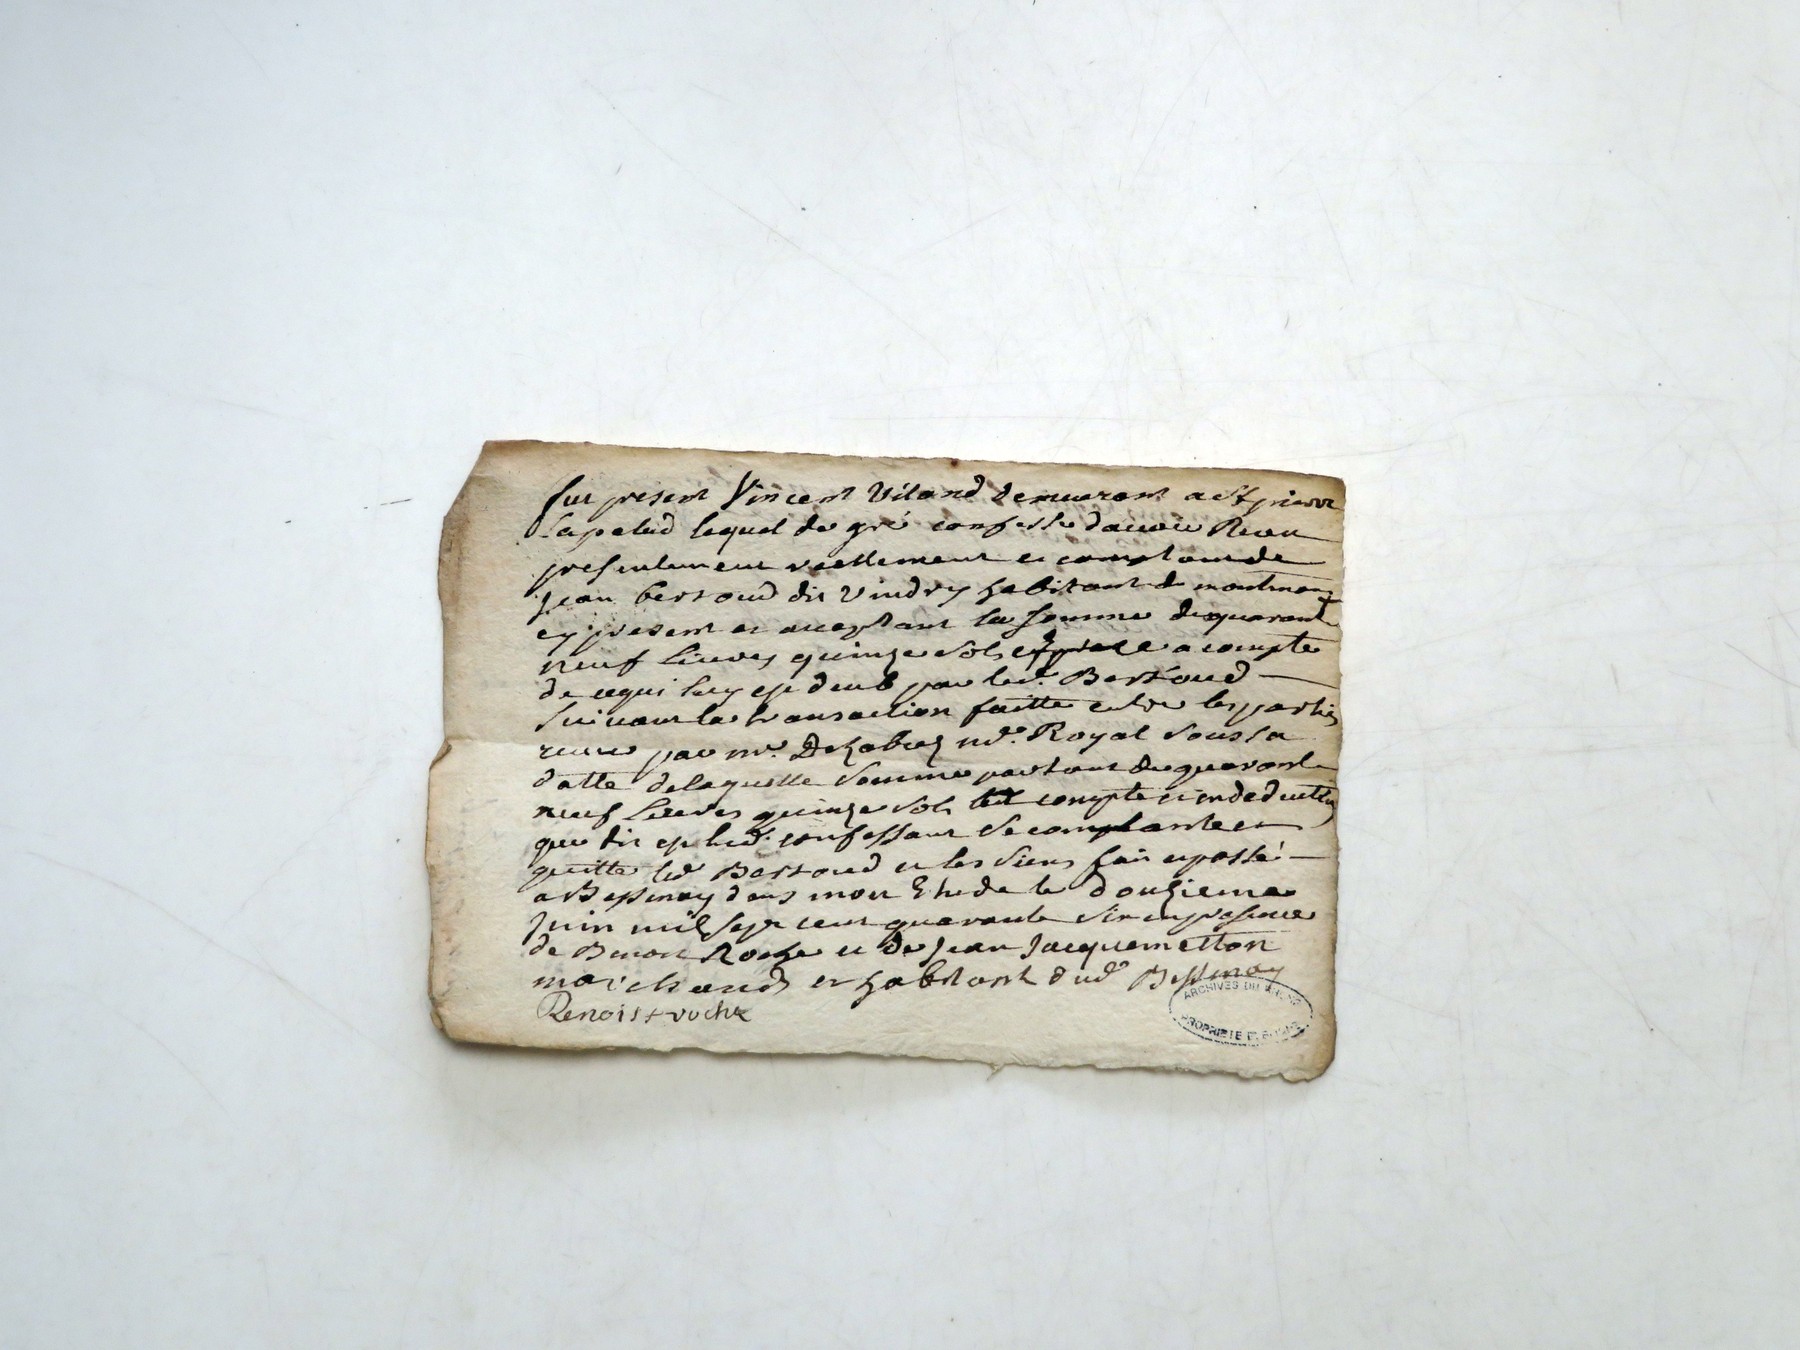 fut present Vincent Viland demeurant a St pierre
Lapalud lequel de gré confesse davoir Receu
presentement reellement et comptant de
Jean bertoud dit Vindry habitant de montmen
cy present et acceptant la somme de quarante
neuf Livres quinze sols a compte
de cequi luy est deub par led. Bertoud
suivant la transaction faitte entre les parties
receue par me. nore. Royal sous sa
datte de laquelle somme partant de quarante
neuf Livres quinze sols compte et en deduction
que dit est led. confessant se contante et
quitte led Bertoud et les siens fait et passé
a Bessenay dans mon Etude le douzieme
Juin mil sept cent quarante six en presence
de Benoit Roche et de Jean Jacquemetton
marchands et habitant dud. Bessenay
Benoist roche
ARCHIVES DU RHONE
PROPRIETE PUBLIQUE